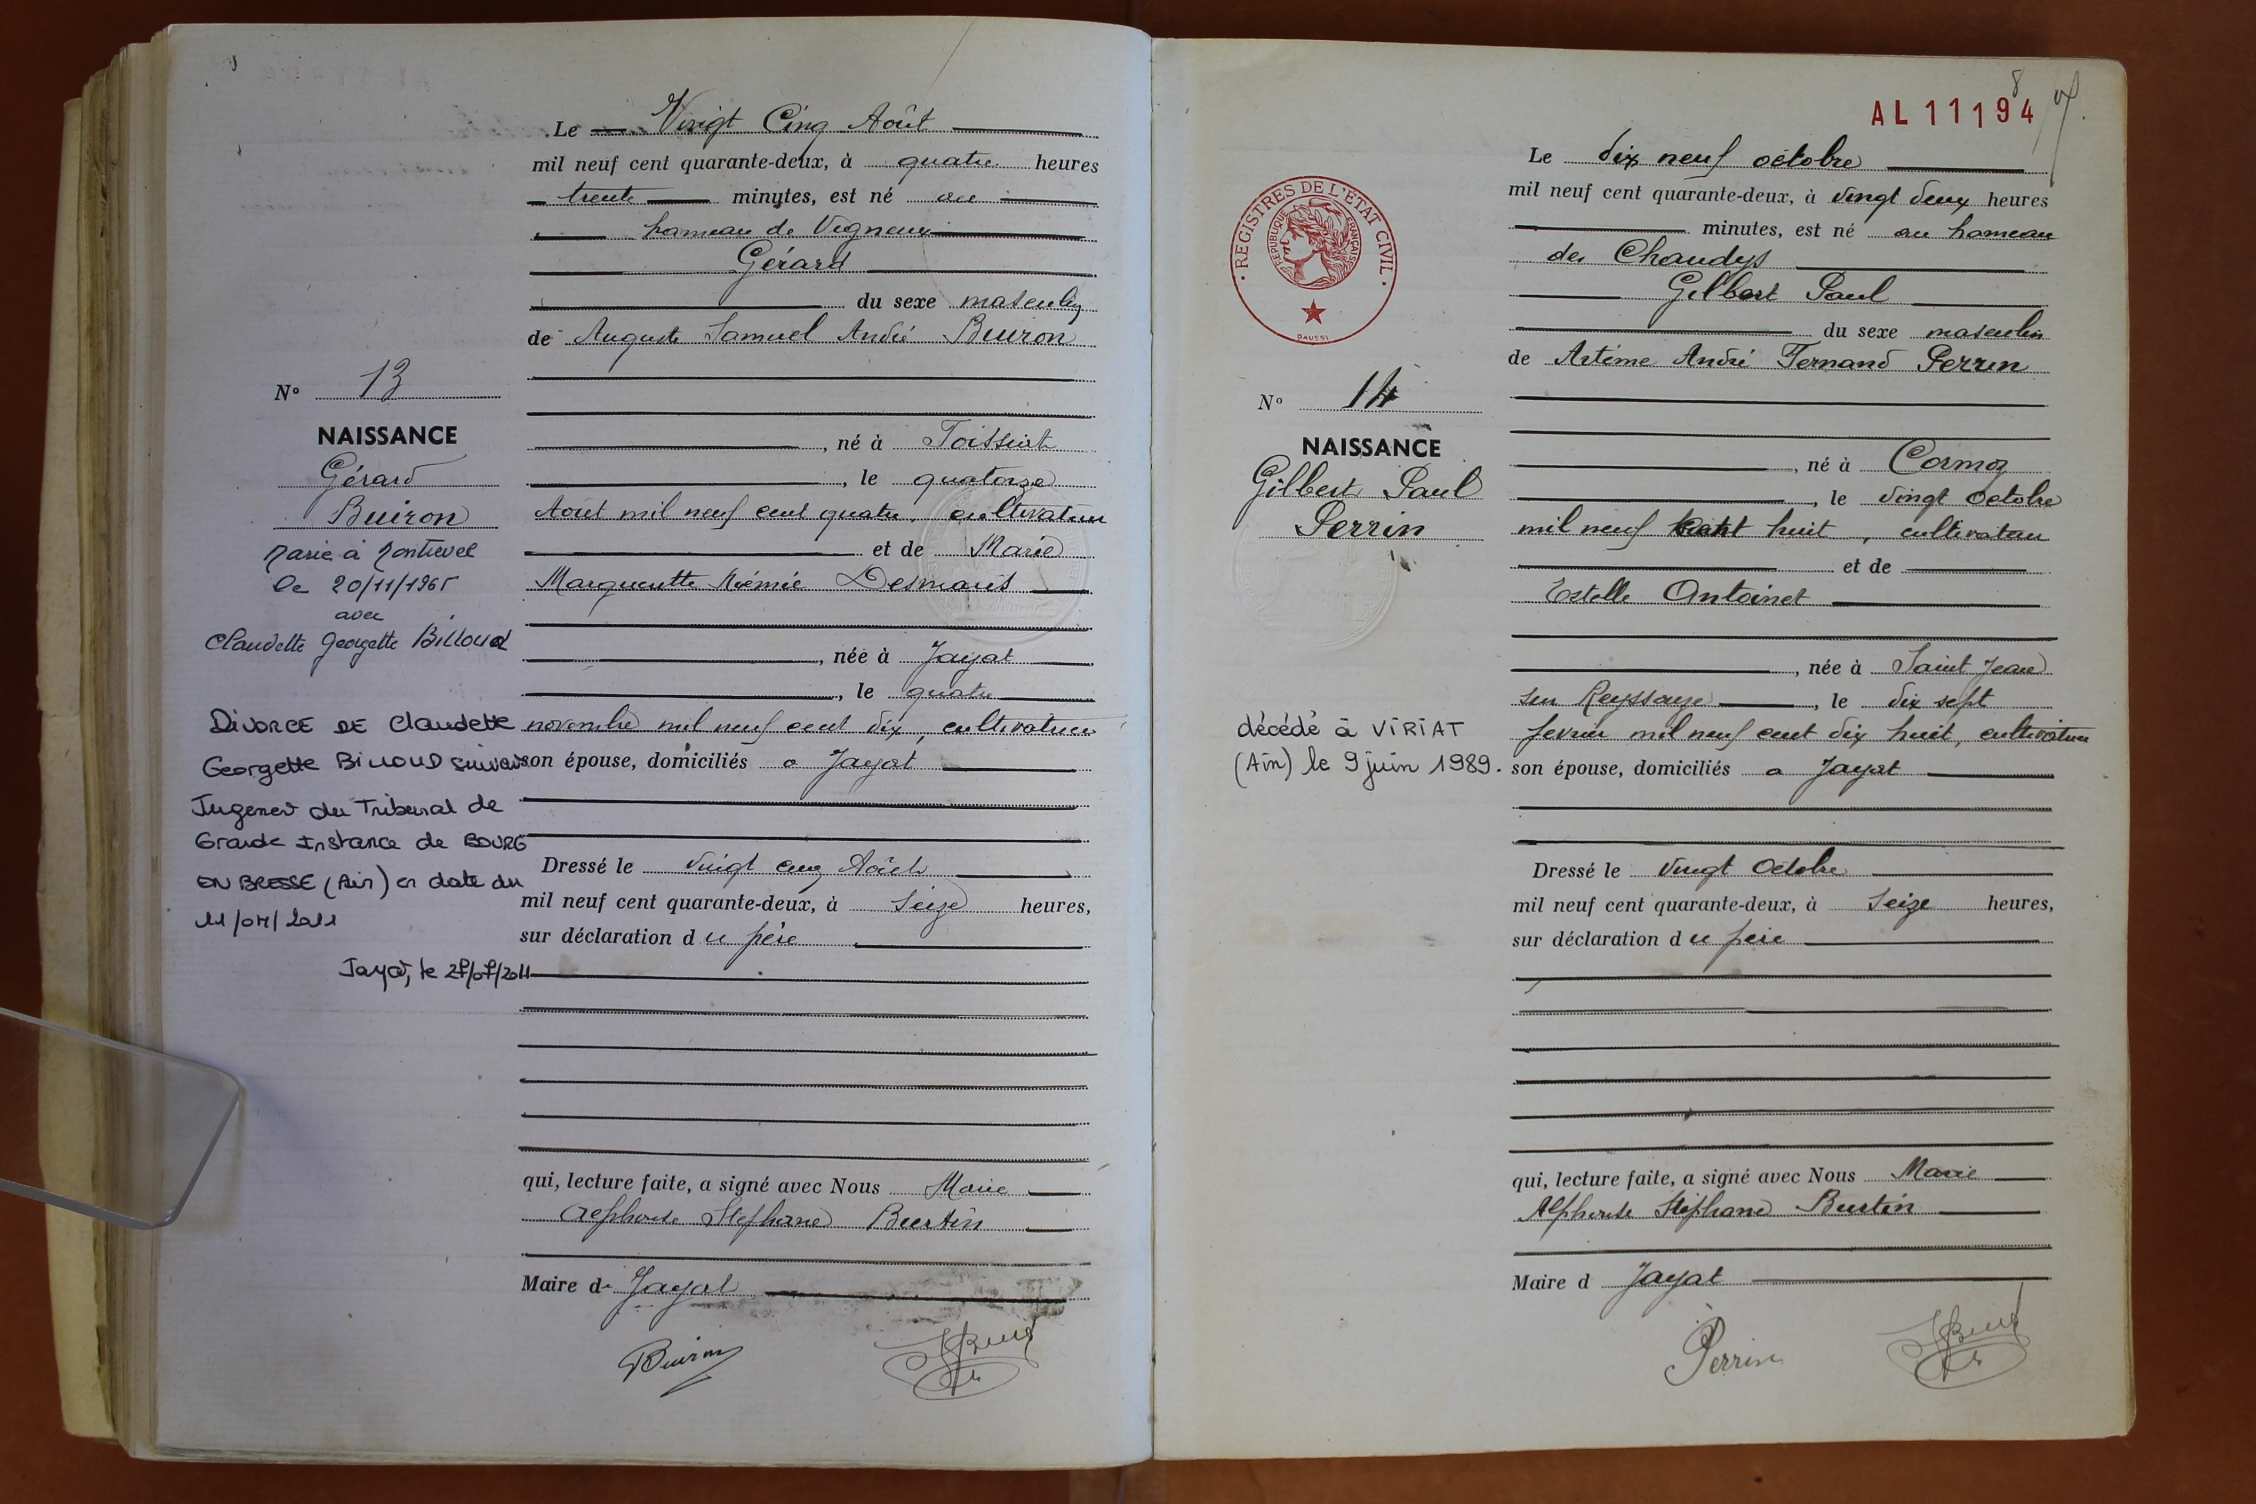 Le Vingt Cinq Août
mil neuf cent quarante-deux, à quatre heures
trente minutes, est né au
hameau de Vigneux
Gérard
du sexe masculin
de Auguste Samuel André Buiron
N° 13
NAISSANCE
Gérard
Buiron
, né à Toissiat
, le quatorze
Aout mil neuf cent quatre, cultivateur
et de Marie
Marguerite Noémie Desmaris
, née à Jayat
, le quatre
novembre mil neuf cent dix, cultivatrice
son épouse, domiciliés a Jayat
Marié à Montrevel
le 20/11/1965
avec
Claudette Georgette Billoud
Divorcé de Claudette
Georgette Billoud suivant
Jugement du Tribunal de
Grande Instance de BOURG
EN BRESSE (Ain) en date du
11/04/2011
Jayat, le 27/07/2011
Dressé le vingt cinq Août
mil neuf cent quarante-deux, à Seize heures,
sur déclaration du père
qui, lecture faite, a signé avec Nous Marie
Alphonse Stéphane Burtin
Maire de Jayat
Buiron
8
AL 11194
REGISTRES DE L'ETAT CIVIL
REPUBLIQUE FRANÇAISE
Le dix neuf octobre
mil neuf cent quarante-deux, à vingt deux heures
minutes, est né au hameau
des Chaudys
Gilbert Paul
du sexe masculin
de Artème André Fernand Perrin
N° 14
NAISSANCE
Gilbert Paul
Perrin
, né à Cormoz
, le vingt octobre
mil neuf cent huit, cultivateur
et de
Estelle Antoinet
, née à Saint Jean
sur Reyssouze, le dix sept
fevrier mil neuf cent dix huit, cultivatrice
son épouse, domiciliés a Jayat
décédé à VIRIAT
(Ain) le 9 juin 1989.
Dressé le vingt Octobre
mil neuf cent quarante-deux, à Seize heures,
sur déclaration du père
qui, lecture faite, a signé avec Nous Marie
Alphonse Stéphane Burtin
Maire d Jayat
Perrin